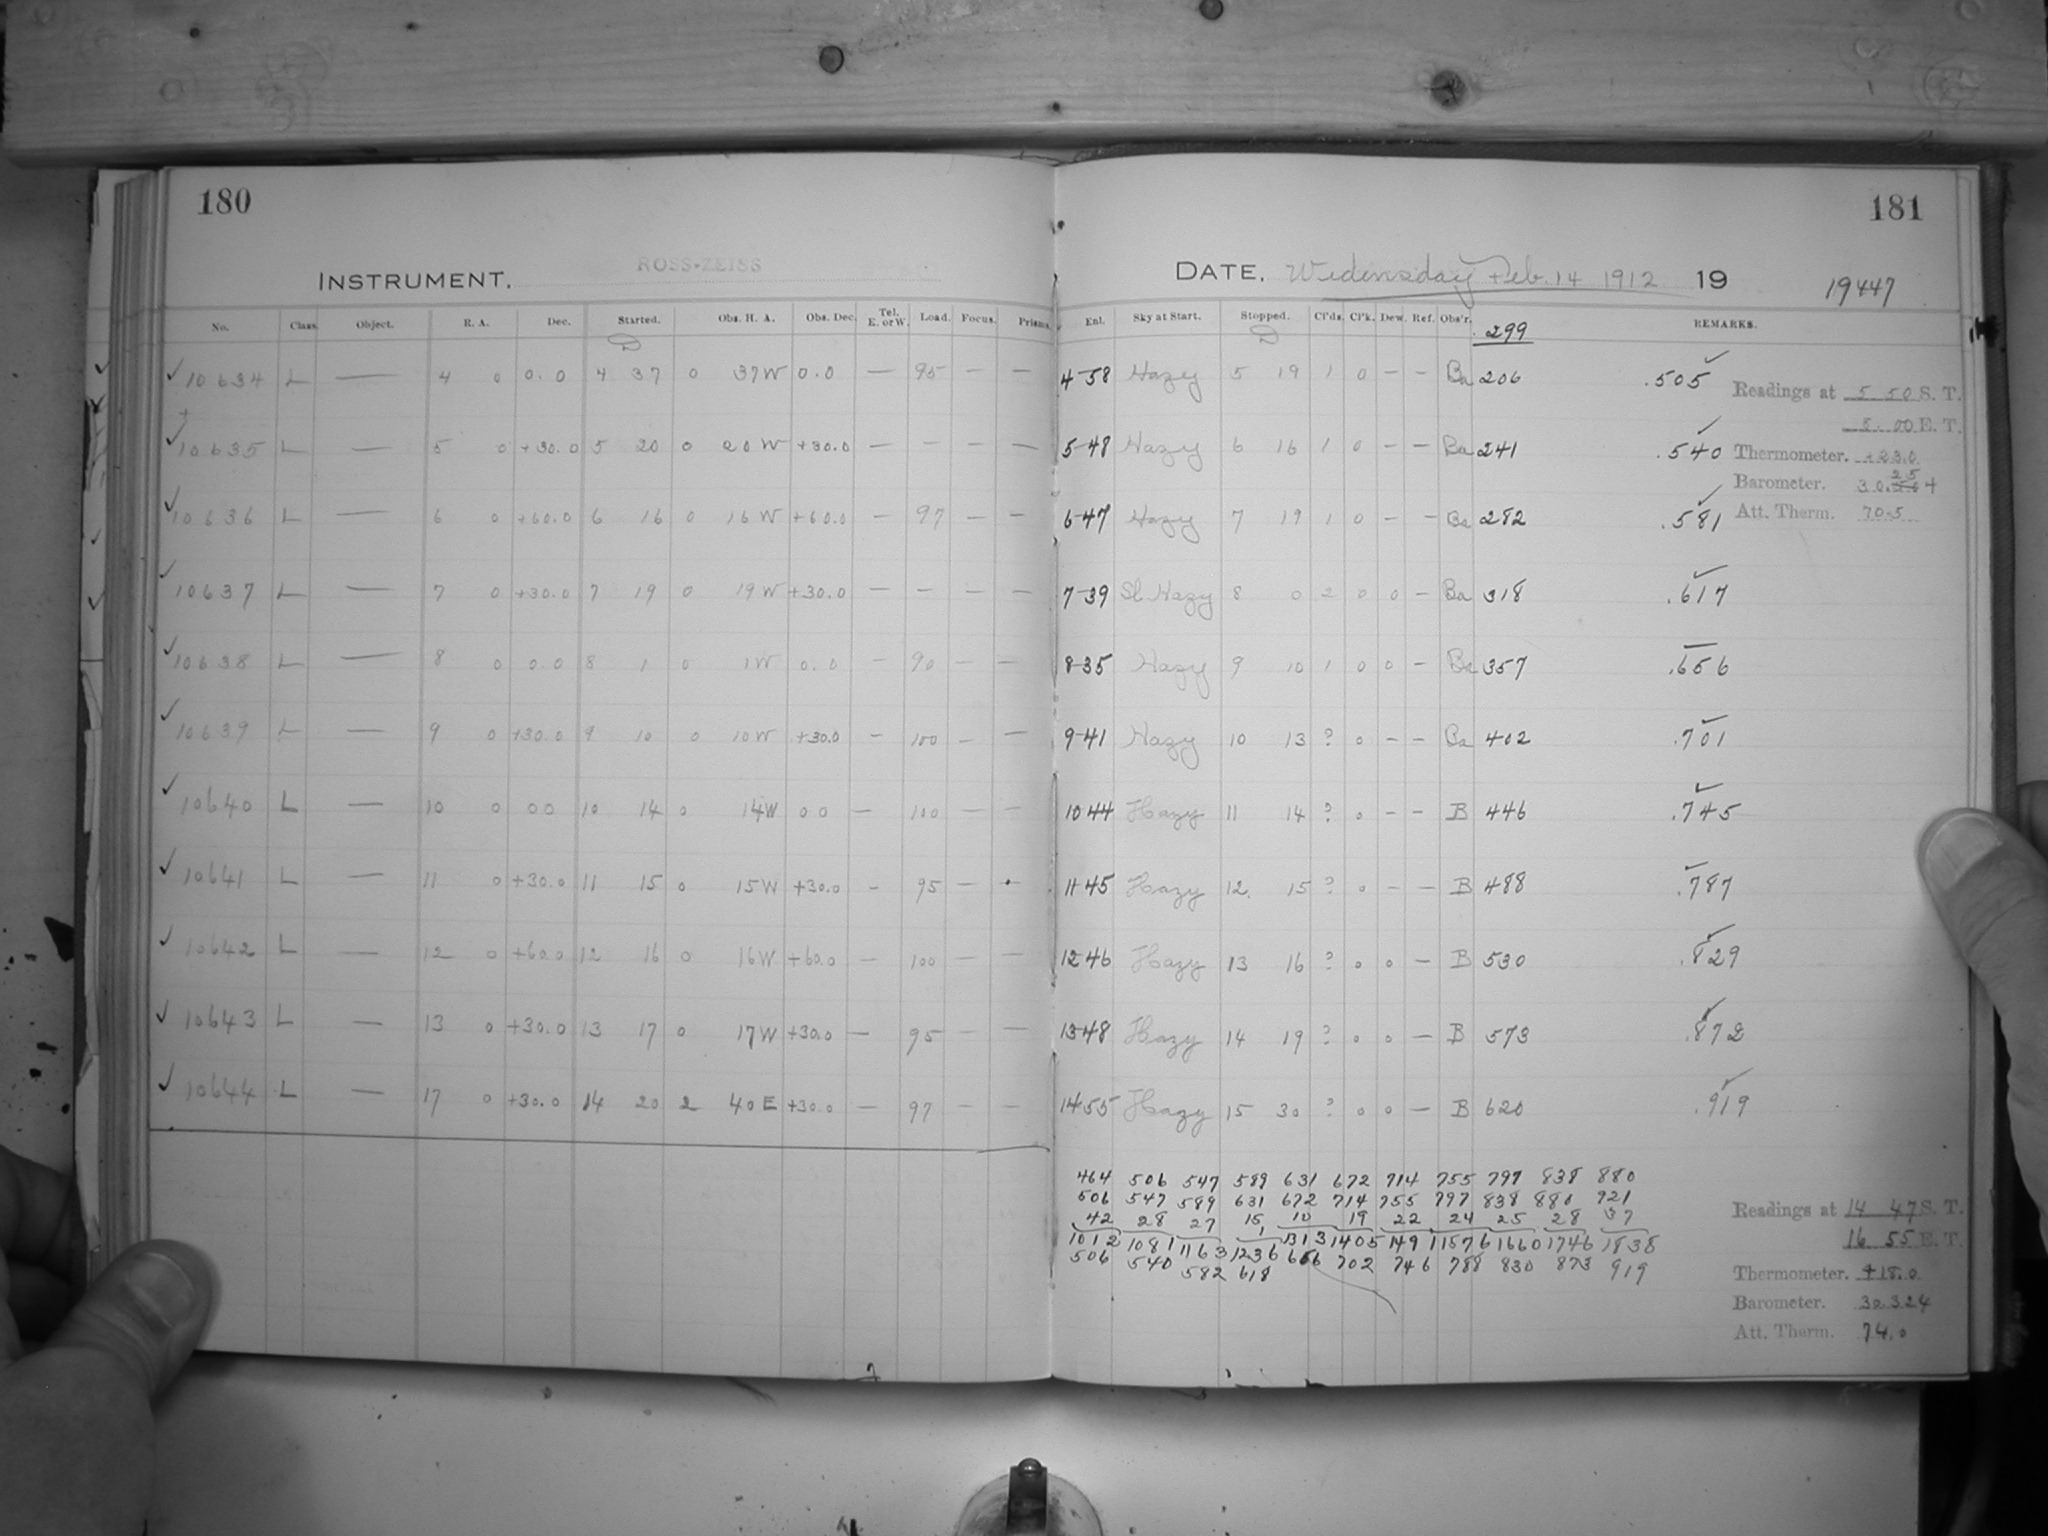 180
181
INSTRUMENT. ROSS-ZEISS
DATE. Wedensday Feb. 14 1912 19 19447
No. Class. Object. R. A. Dec. Started. Obs. H. A. Obs. Dec. Tel. E. or W. Load. Focus. Prisms.
Enl. Sky at Start. Stopped. Cl'ds. Cl'k. Dew. Ref. Obs'r. 299 REMARKS.
✓ 10634 L — 4 0 0.0 4 37 0 37W 0.0 — 95 — — 4-58 Hazy 5 19 1 0 — — Ba 206 .505 ✓
Readings at 5 50 S. T.
8. 00 E. T.
✓ 10635 L — 5 0 +30.0 5 20 0 20W +30.0 — — — — 5-48 Hazy 6 16 1 0 — — Ba 241 .540 ✓
Thermometer. +23.0
Barometer. 30.
Att. Therm. 70.5
✓ 10636 L — 6 0 +60.0 6 16 0 16W +60.0 — 97 — — 6-47 Hazy 7 19 1 0 — — Ba 282 .581 ✓
✓ 10637 L — 7 0 +30.0 7 19 0 19W +30.0 — — — — 7-39 Sl. Hazy 8 0 2 0 0 — Ba 318 .617 ✓
✓ 10638 L — 8 0 0.0 8 1 0 1W 0.0 — 90 — — 8-35 Hazy 9 10 1 0 0 — Ba 357 .656
✓ 10639 L — 9 0 +30.0 9 10 0 10W +30.0 — 100 — — 9-41 Hazy 10 13 ? 0 — — Ba 402 .701 ✓
✓ 10640 L — 10 0 00 10 14 0 14W 00 — 100 — — 10-44 Hazy 11 14 ? 0 — — B 446 .745 ✓
✓ 10641 L — 11 0 +30.0 11 15 0 15W +30.0 — 95 — 11-45 Hazy 12 15 ? 0 — — B 488 .787 ✓
✓ 10642 L — 12 0 +60.0 12 16 0 16W +60.0 — 100 — — 12-46 Hazy 13 16 ? 0 0 — B 530 .829 ✓
✓ 10643 L — 13 0 +30.0 13 17 0 17W +30.0 — 95 — — 13-48 Hazy 14 19 ? 0 0 — B 573 .872 ✓
✓ 10644 L — 17 0 +30.0 14 20 2 40E +30.0 — 97 — — 14-55 Hazy 15 30 ? 0 0 — B 620 .919 ✓
464 506 547 589 631 672 714 755 797 838 880
506 547 589 631 672 714 755 797 838 880 921
42 28 27 15 10 19 22 24 25 28 37
1012 1081 1163 1236 1313 1405 1491 1576 1660 1746 1838
506 540 582 618 656 702 746 788 830 873 919
Readings at 14 47 S. T.
16 55 E. T.
Thermometer. +18.0
Barometer. 30.324
Att. Therm. 74.0